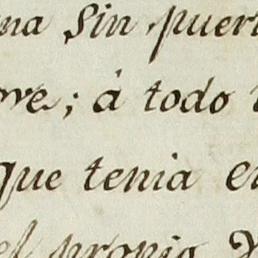 na sin puer
ve; á todo
que tenia e
el propio